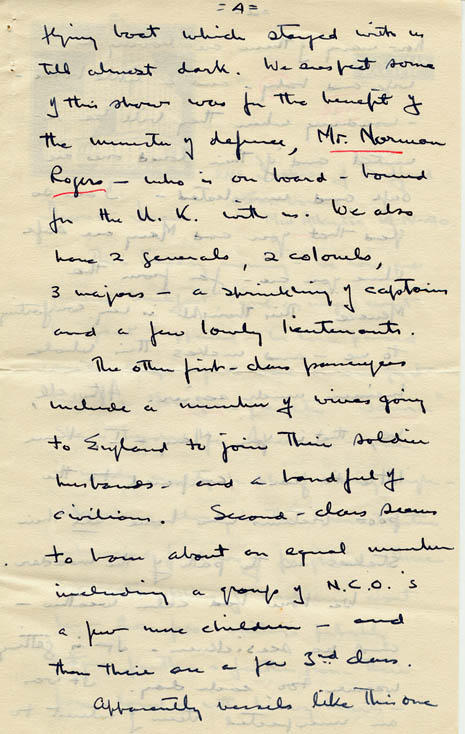 = 4 =
flying boat which stayed with us
till almost dark. We suspect some
of this show was for the benefit of
the minister of defence, Mr. Norman
Rogers – who is on board – bound
for the U.K. with us. We also
have 2 generals, 2 colonels,
3 majors – a sprinkling of captains
and a few lowly lieutenants.
The other first-class passengers
include a number of wives going
to England to join their soldier
husbands – and a handful of
civilians. Second-class seems
to have about an equal number
including a group of N.C.O.'s
a few more children – and
then there are a few 3rd class.
Apparently vessels like this one